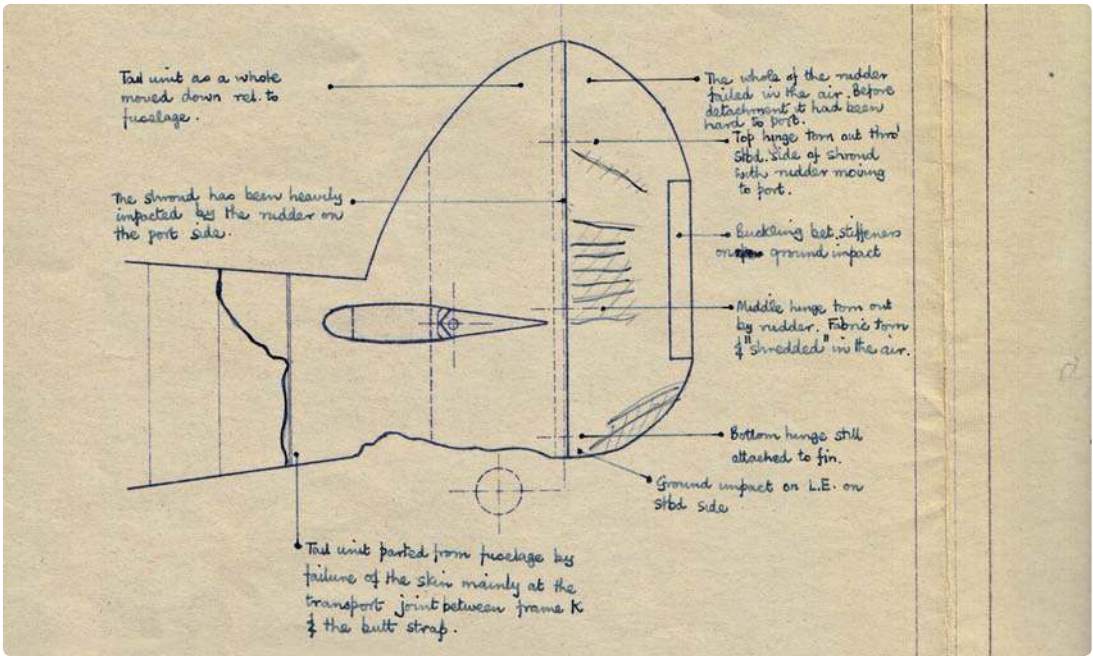 Tail unit as a whole
moved down rel. to
fuselage.
The shroud has been heavily
impacted by the rudder on
the port side.
The whole of the rudder
failed in the air. Before
detachment it had been
hard to port.
Top hinge torn out thro'
stbd. side of shroud
with rudder moving
to port.
Buckling bet. stiffeners
on ground impact
Middle hinge torn out
by rudder. Fabric torn
& "shredded" in the air.
Bottom hinge still
attached to fin.
Ground impact on L.E. on
stbd side
Tail unit parted from fuselage by
failure of the skin mainly at the
transport joint between frame K
& the butt strap.